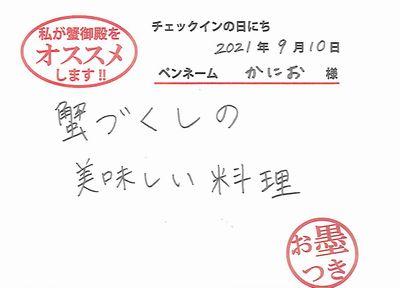 私が蟹御殿を
オススメ
します!!
チェックインの日にち
2021年9月10日
ペンネーム かにお 様
蟹づくしの
美味しい料理
お墨
つき